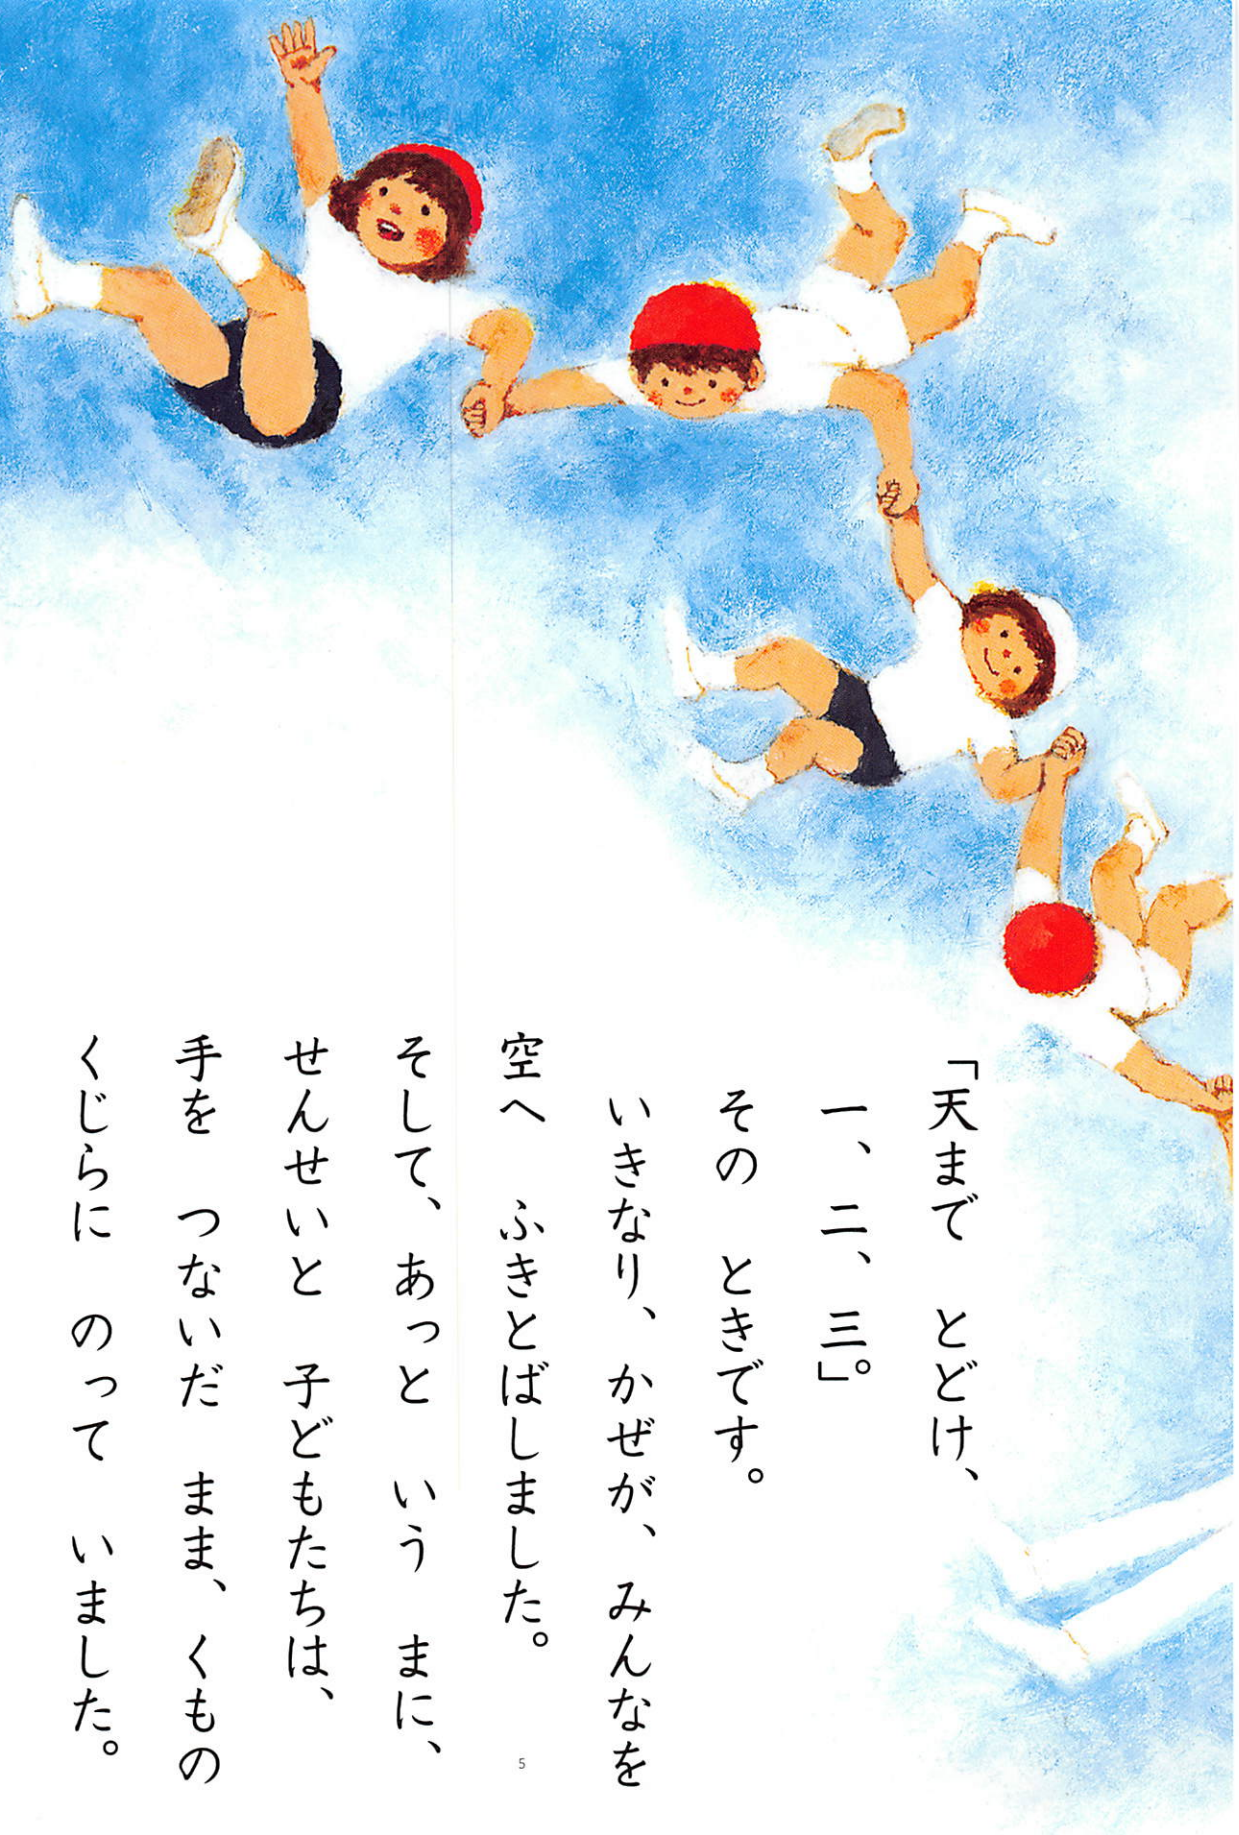 「天まで　とどけ、
一、二、三」。
その　ときです。
いきなり、かぜが、みんなを
空へ　ふきとばしました。
そして、あっと　いう　まに、
せんせいと　子どもたちは、
手を　つないだ　まま、くもの
くじらに　のって　いました。
5